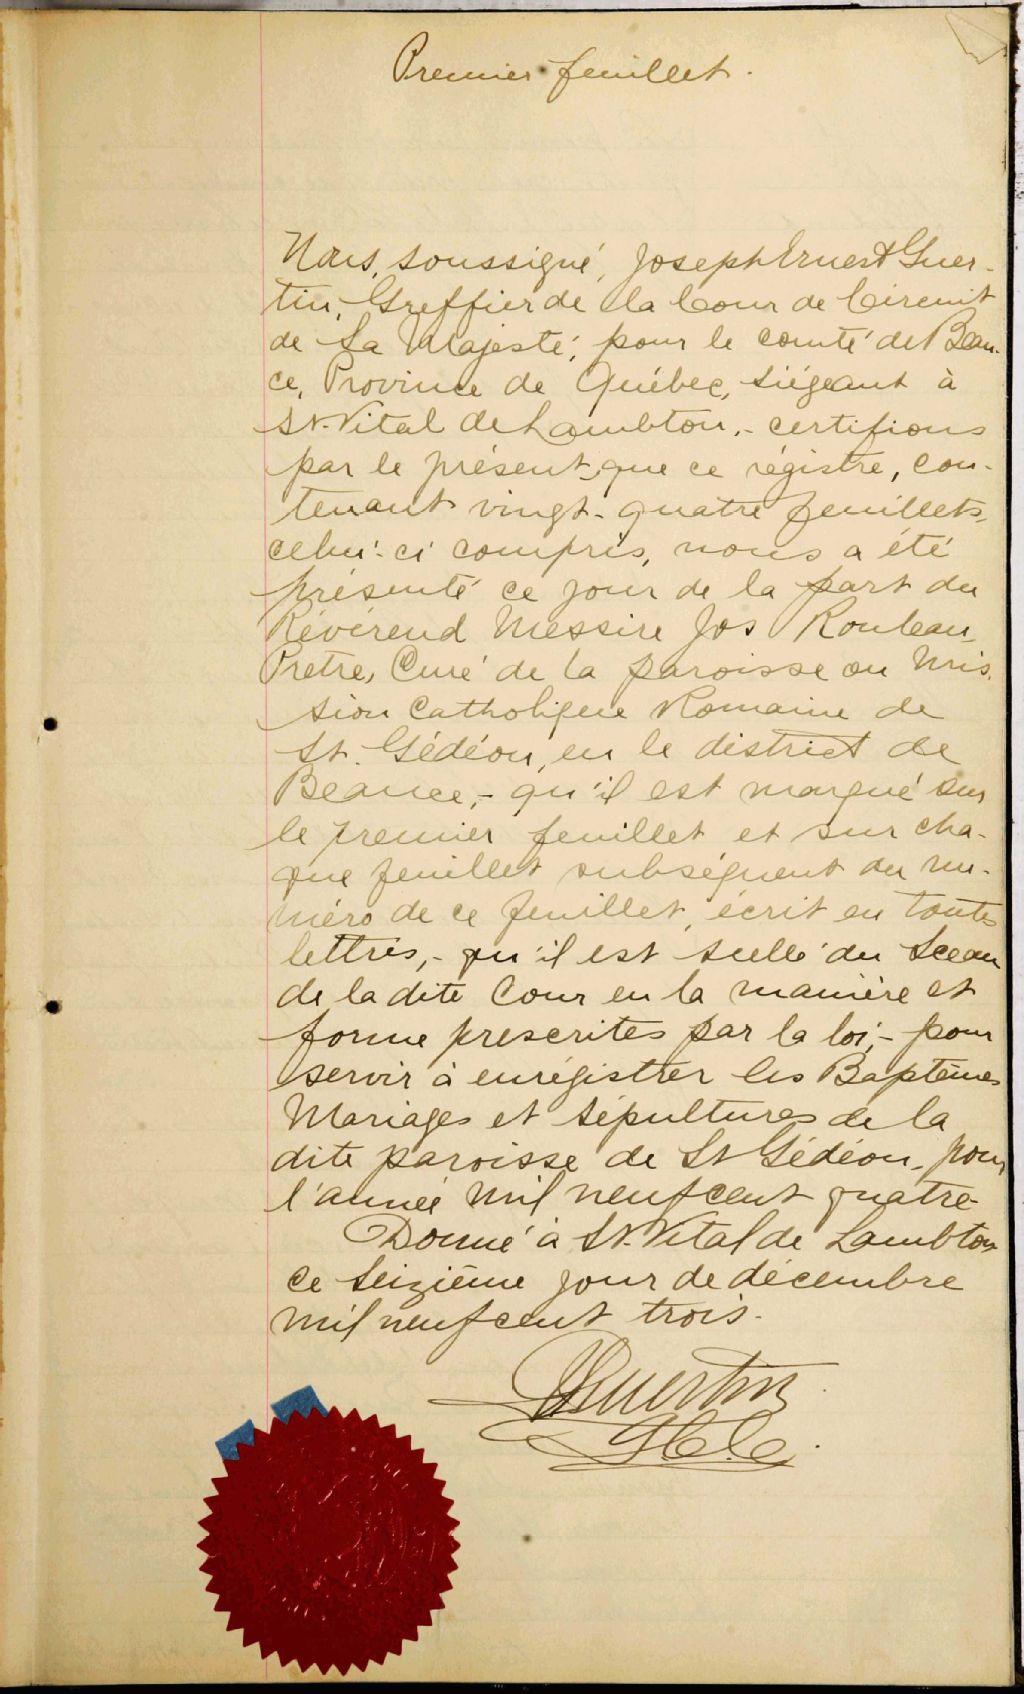 Premier feuillet.
Nous, soussigné, Joseph Ernest Guer-
tin, Greffier de la Cour de Circuit
de Sa Majesté, pour le comté de Beau-
ce, Province de Québec, siégeant à
St-Vital de Lambton,- certifions
par le présent, que ce régistre, con-
tenant vingt-quatre feuillets,
celui-ci compris, nous a été
présenté ce jour de la part du
Révérend Messire Jos Rouleau,
Prêtre, Curé de la paroisse ou Mis-
sion Catholique Romaine de
St. Gédéon, en le district de
Beauce,- qu'il est marqué sur
le premier feuillet et sur cha-
que feuillet subséquent du nu-
méro de ce feuillet, écrit en toutes
lettres,- qu'il est scellé du Sceau
de la dite Cour en la manière et
forme prescrites par la loi,- pour
servir à enrégistrer les Baptêmes
Mariages et Sépultures de la
dite paroisse de St Gédéon, pour
l'année mil neuf cent quatre-
Donné à St. Vital de Lambton
ce seizième jour de décembre
mil neuf cent trois.
Guertin